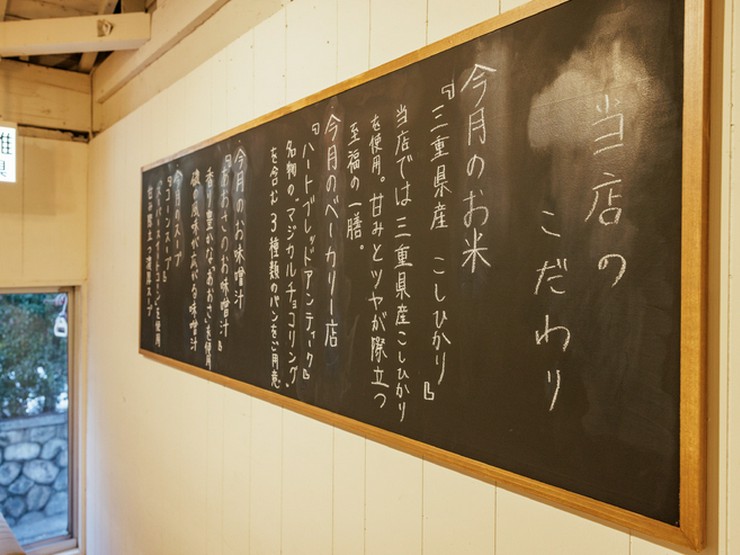 当店の
こだわり
今月のお米
『三重県産 こしひかり』
当店では三重県産こしひかり
を使用。甘みとツヤが際立つ
至福の一膳。
今月のベーカリー店
『ハートブレッドアンティーク』
名物の"マジカルチョコリング"
を含む3種類のパンをご用意
今月のお味噌汁
『あおさのお味噌汁』
香り豊かな"あおさ"を使用
磯の風味が広がる味噌汁
今月のスープ
『コーンスープ』
を使用
スープ